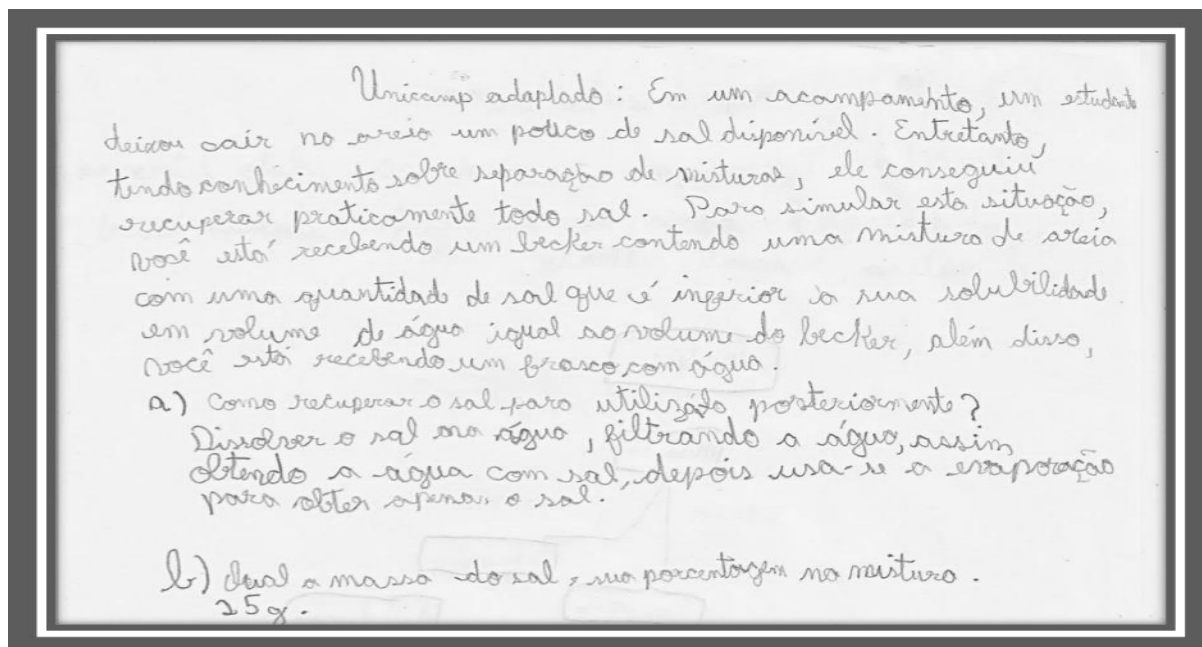 Unicamp adaplado: Em um acampamento, um estudante
deixou cair no areia um pouco de sal disponível. Entretanto,
tendo conhecimento sobre separação de misturas, ele conseguiu
recuperar praticamente todo sal. Para simular esta situação,
você está recebendo um becker contendo uma mistura de areia
com uma quantidade de sal que é inferior à sua solubilidade
em volume de água igual ao volume do becker, além disso,
você está recebendo um frasco com água.
a) Como recuperar o sal para utilizá-lo posteriormente?
Dissolver o sal na água, filtrando a água, assim
obtendo a água com sal, depois usa-se a evaporação
para obter apenas o sal.
b) Qual a massa do sal, sua porcentagem na mistura.
25g.